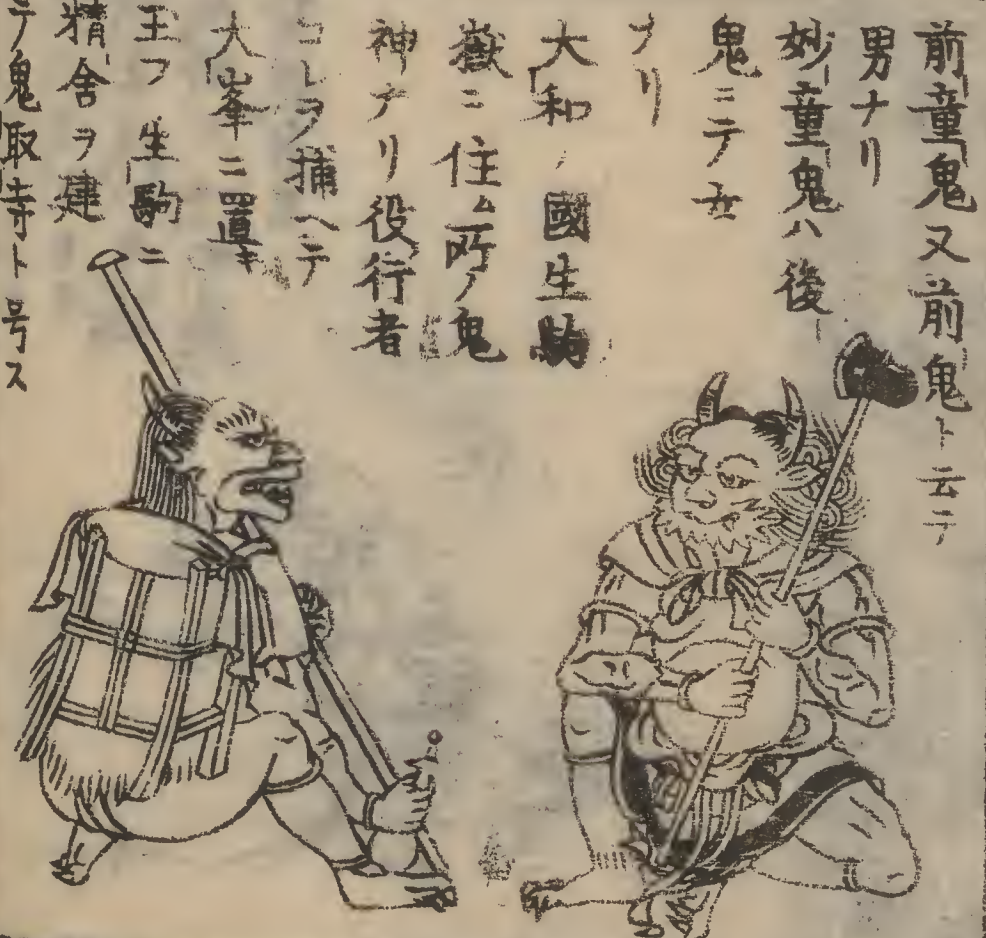 前童鬼又前鬼ト云テ
男ナリ
妙童鬼ハ後
鬼ニテ女
ナリ
大和ノ國生駒
嶽ニ住ム所ノ鬼
神ナリ役行者
コレヲ捕ヘテ
大峯ニ置キ
玉フ生駒ニ
精舎ヲ建
テ鬼取寺ト号ス